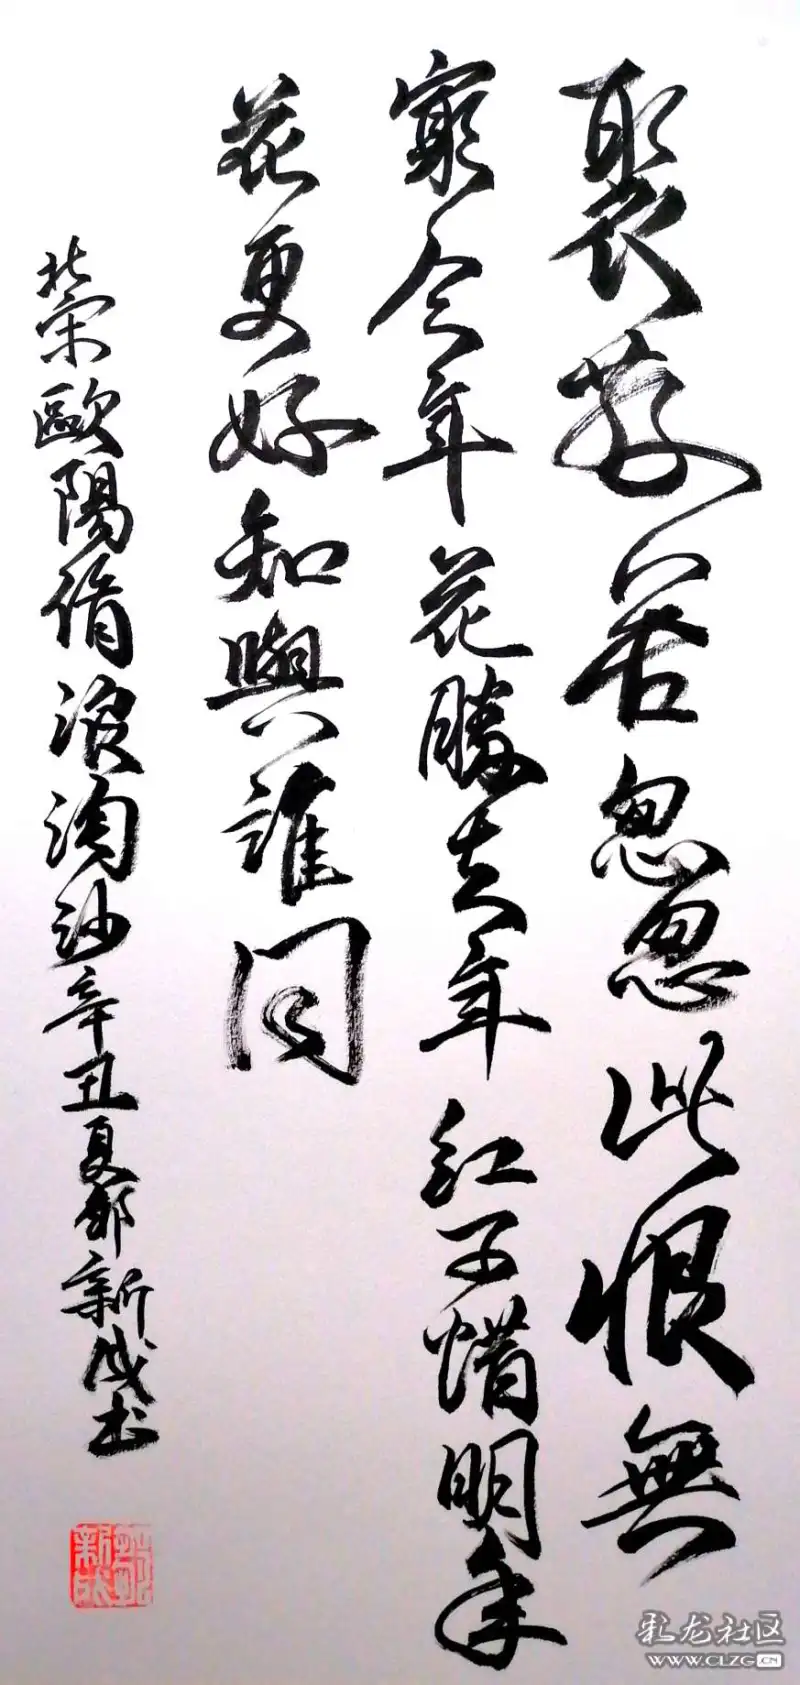 聚散苦怱怱此恨無
窮今年花勝去年紅可惜明年
花更好知與誰同
北宋歐陽脩浪淘沙辛丑夏新成书
彩龙社区
WWW.CLZG.CN